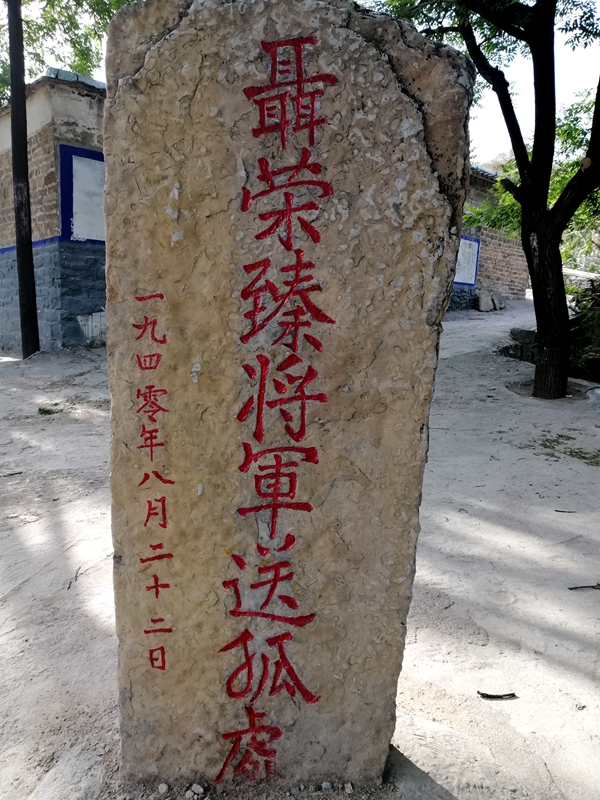 聶荣臻将軍送孤处
一九四零年八月二十二日